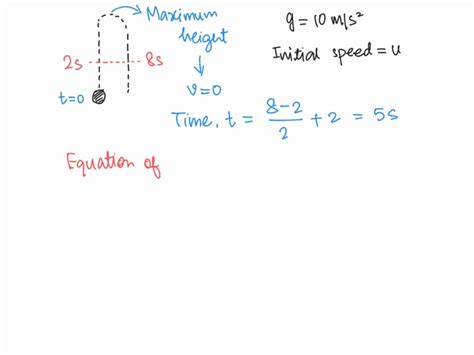 Maximum
height
v=0
2s
8s
t=0
g = 10 m/s²
Initial speed = u
Time, t = 8-2/2 + 2 = 5s
Equation of